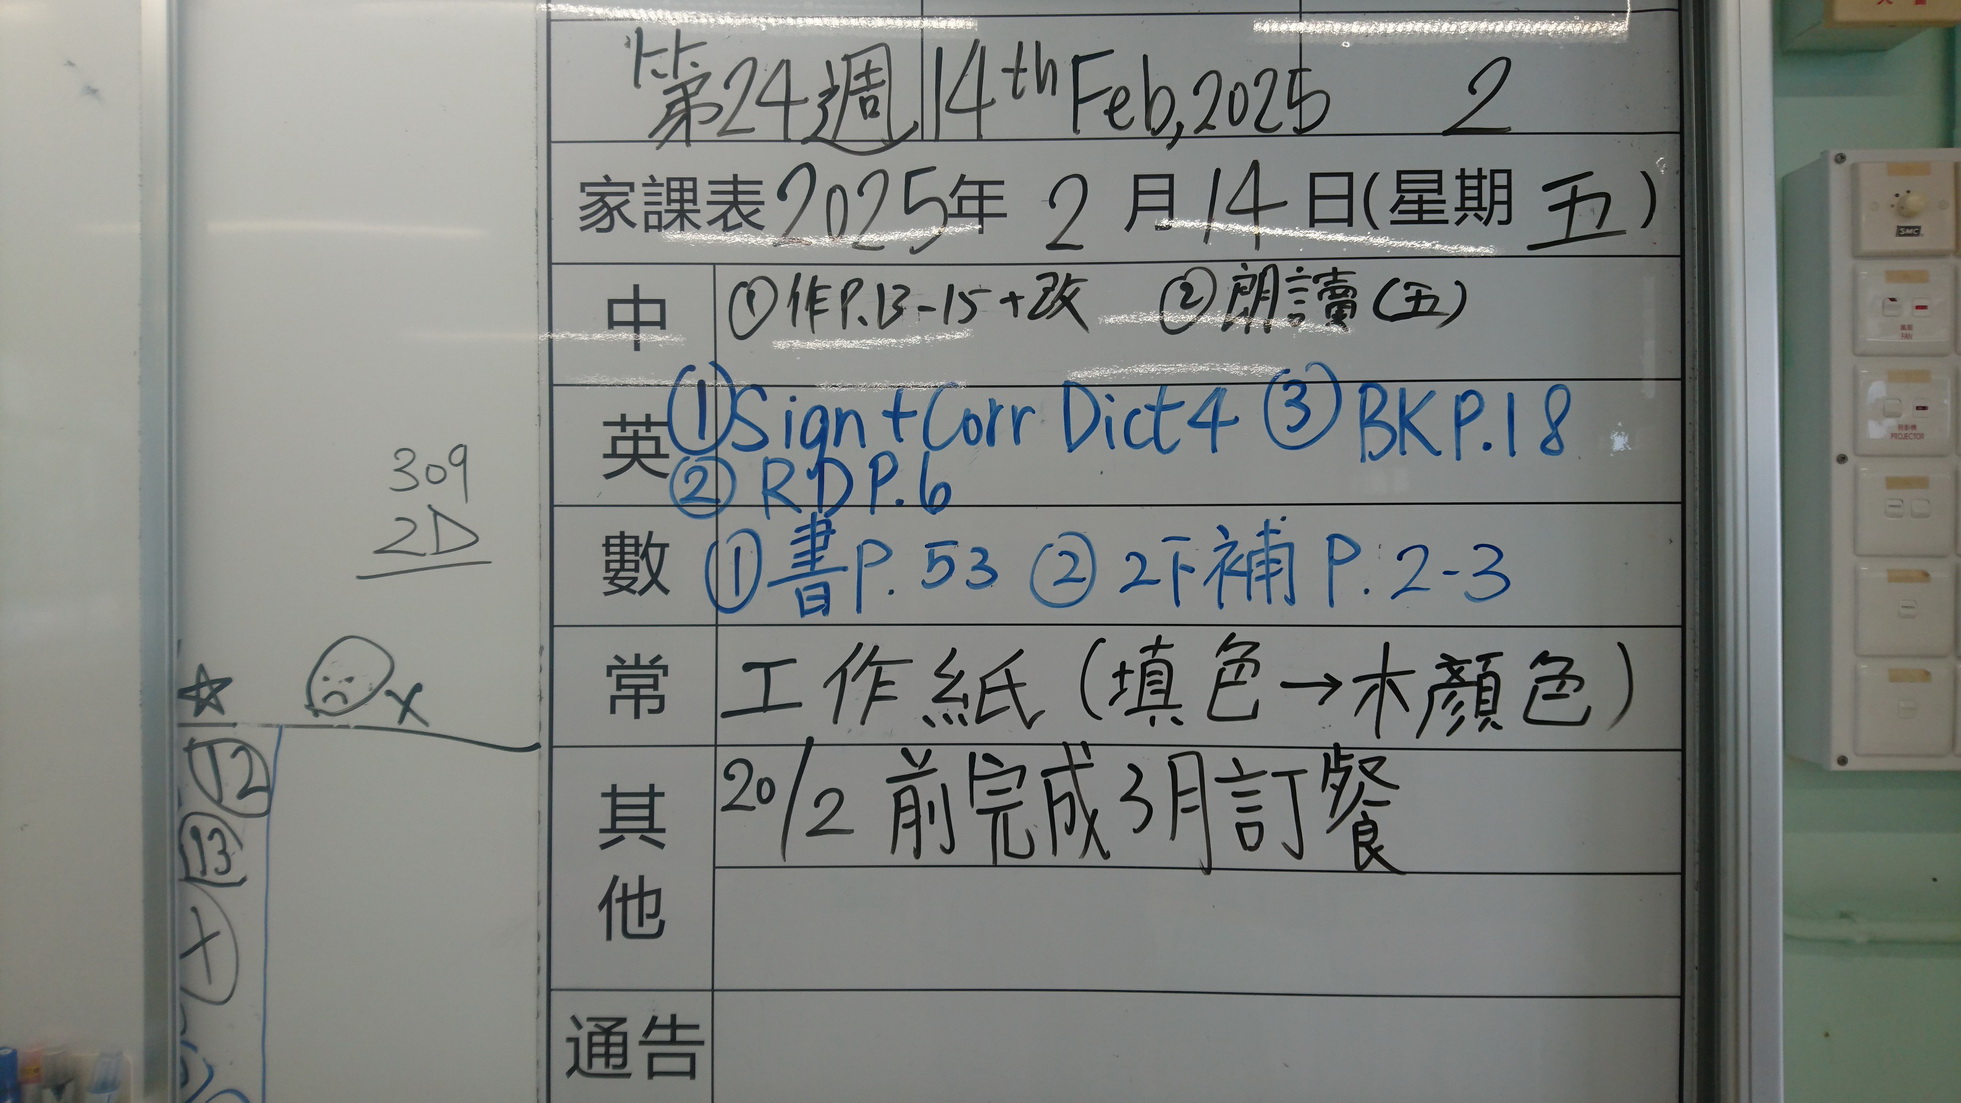 第24週 14th Feb, 2025 2
家課表 2025年 2月14日(星期五)
中 ①作P.13-15+改 ②朗讀(五)
英 ①Sign+Corr Dict 4 ③BK P.18
② RD P.6
數 ①書P.53 ②2下補P.2-3
常 工作紙(填色→木顏色)
其他 20/2 前完成3月訂餐
通告
309
2D
12
13
SMC
FAN
PROJECTOR